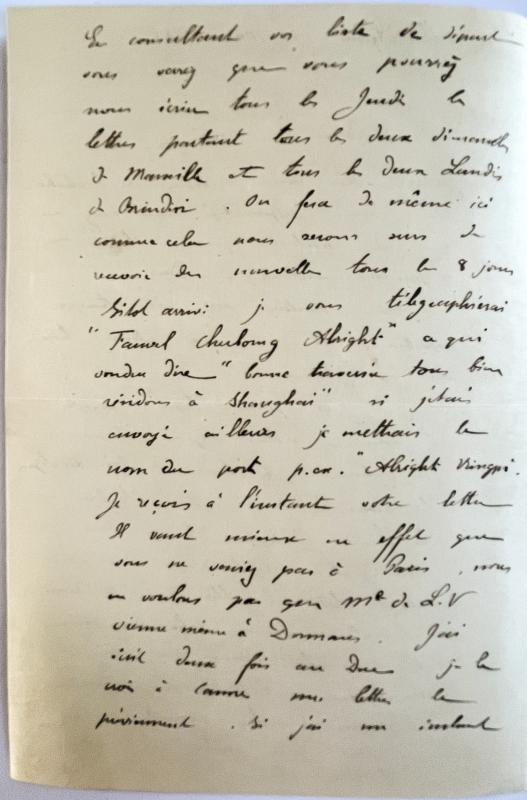 En consultant vos liste de départ
vous verrez que vous pourrez
nous écrire tous les Jeudis les
lettres partant tous les deux dimanches
de Marseille et tous les deux Lundis
de Brindisi. On fera de même ici
comme cela nous serons surs de
recevoir des nouvelles tous les 8 jours
Sitot arrivé je vous télégraphierai
" Cherbourg Alright" ce qui
voudra dire "bonne traversée tous bien
résidons à Shanghai" si j'étais
envoyé ailleurs je mettrais le
nom du port p. ex. "Alright
Je reçois à l'instant votre lettre
Il vaut mieux en effet que
vous ne veniez pas à Paris, nous
ne voulons pas que Me de L.V
vienne même à Dormans. J'ai
écrit deux fois au Duc je le
crois à Cannes mes lettres le
préviennent. Si j'ai un instant